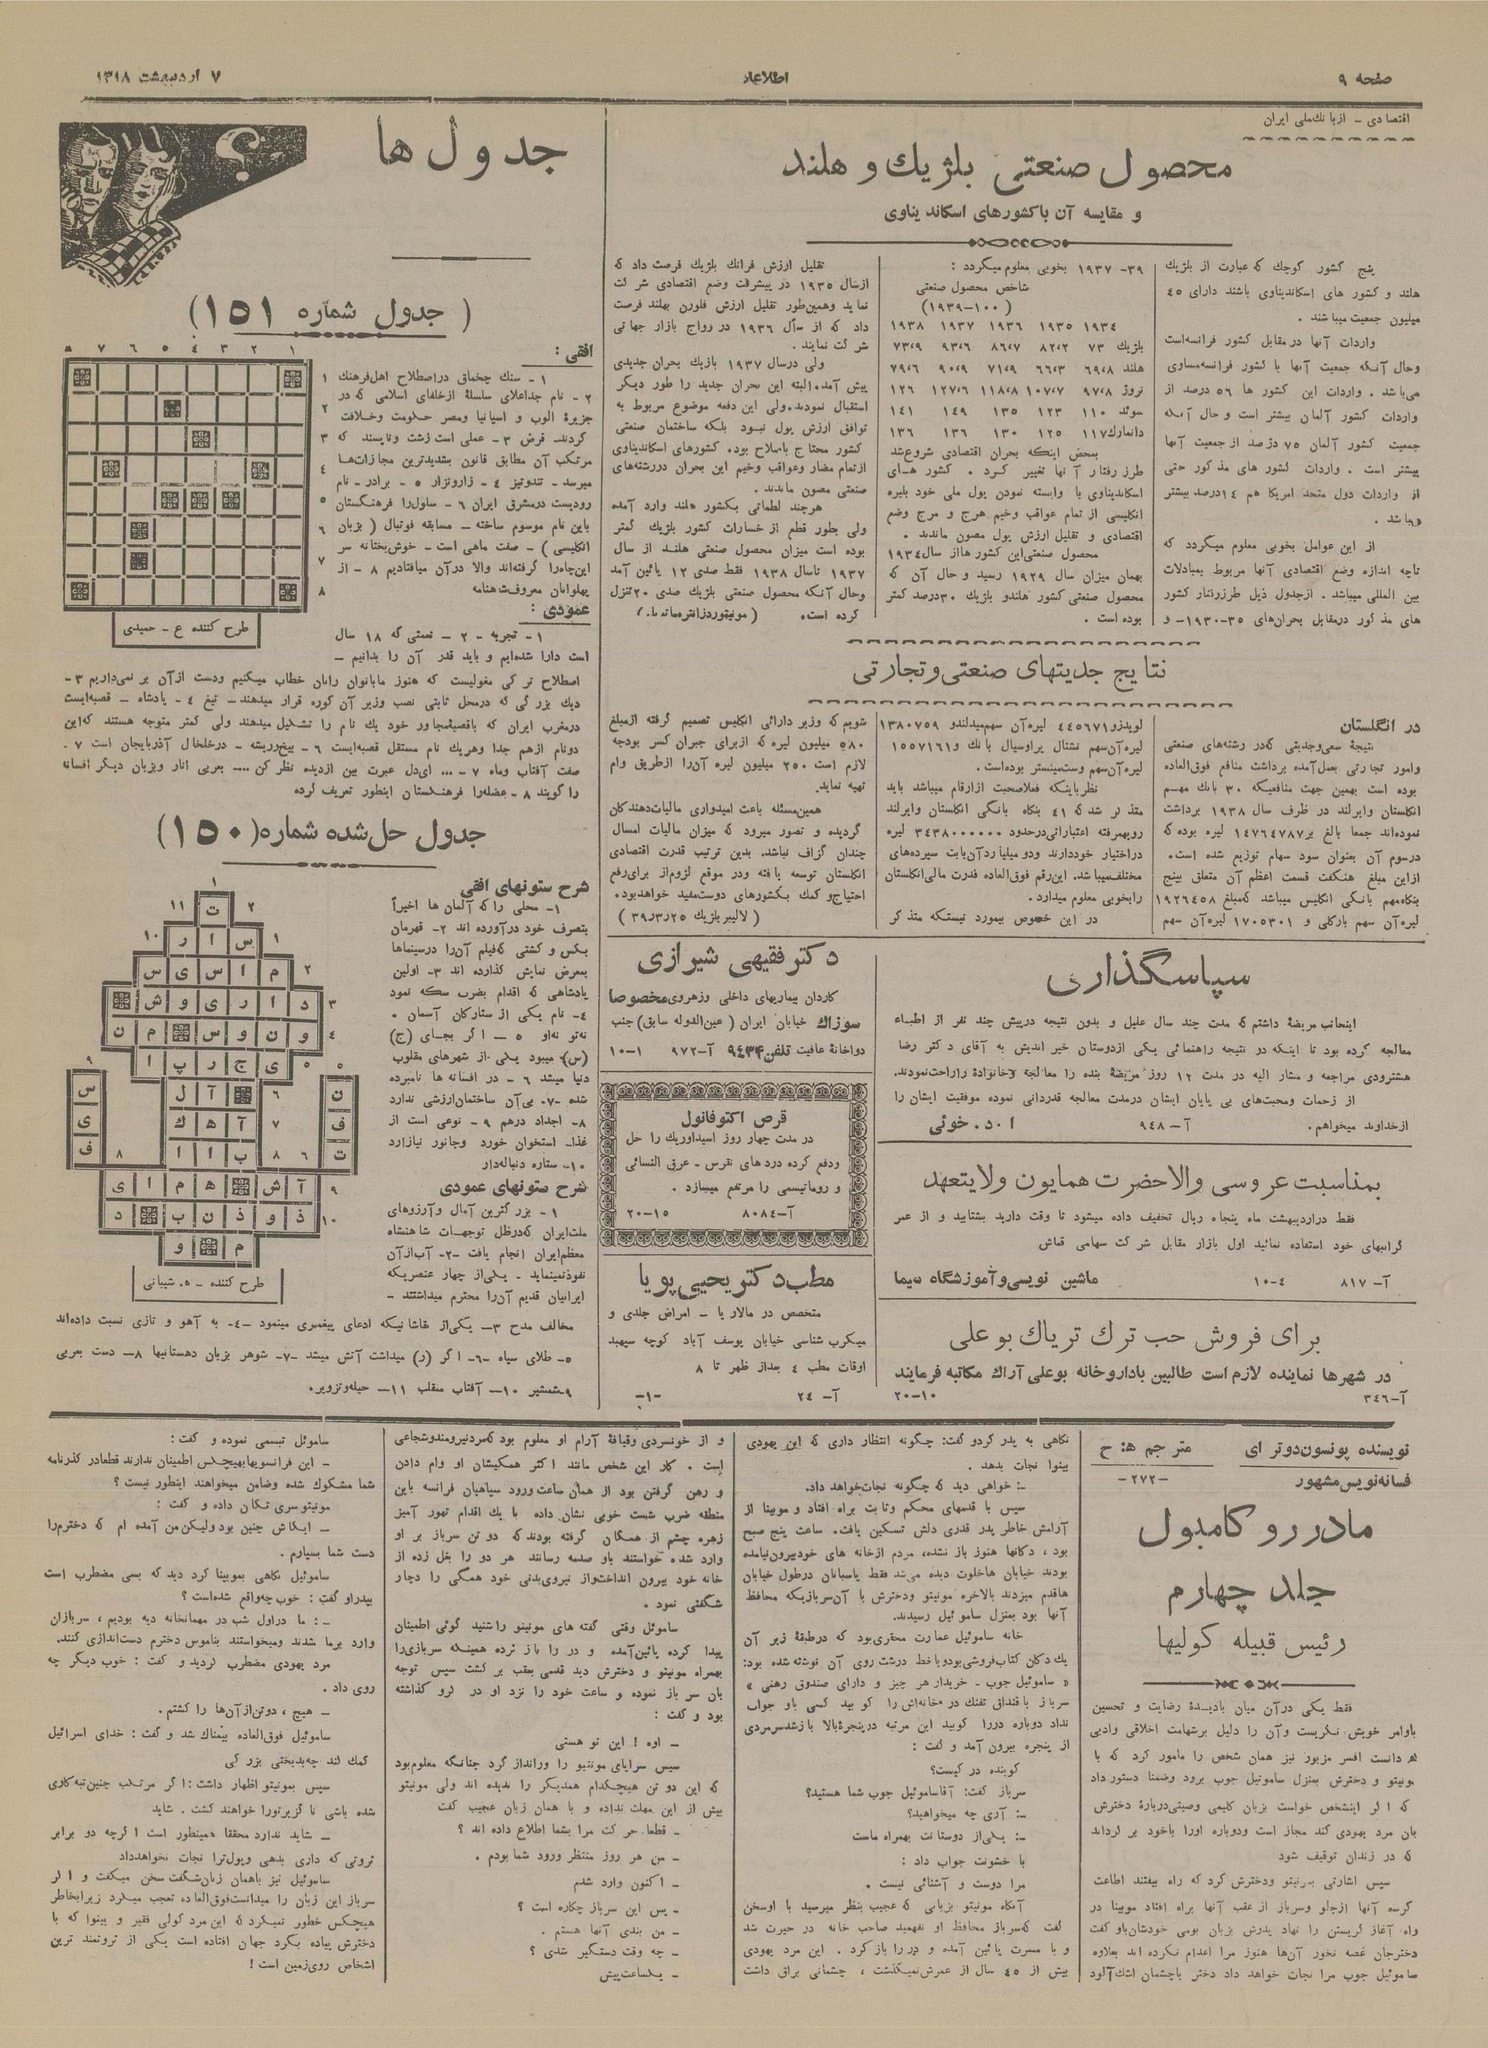 صفحه ۹
اطلاعات
۷ اردیبهشت ۱۳۱۸
اقتصادی - از بانک ملی ایران
محصول صنعتی بلژیک و هلند
و مقایسه آن با کشورهای اسکاندیناوی
پنج کشور کوچک که عبارت از بلژیک
هلند و کشور های اسکاندیناوی باشند دارای ٤٥
میلیون جمعیت میباشند .
واردات آنها در مقابل کشور فرانسه است
وحال آنکه جمعیت آنها با کشور فرانسه مساوی
می‌باشد . واردات این کشور ها ٥٦ درصد از
واردات کشور آلمان بیشتر است و حال آنکه
جمعیت کشور آلمان ۷٥ درصد از جمعیت آنها
بیشتر است . واردات کشور های مذکور حتی
از واردات دول متحد امریکا هم ۱٤ درصد بیشتر
میباشد .
از این عوامل بخوبی معلوم میگردد که
تاچه اندازه وضع اقتصادی آنها مربوط بمبادلات
بین المللی میباشد . از جدول ذیل طرز رفتار کشور
های مذکور در مقابل بحران‌های ۳٥-۱۹۳۰- و
۳۹- ۱۹۳۷ بخوبی معلوم میگردد :
شاخص محصول صنعتی
(۱۰۰-۱۹۳۹)
۱۹۳٤ ۱۹۳٥ ۱۹۳٦ ۱۹۳۷ ۱۹۳۸
بلژیک ۷۳ ۸۲،۲ ۸٦،۷ ۹۳،٦ ۷۳،۹
هلند ٦۹،۸ ٦٦،۳ ۷۱،۹ ۹۰،۹ ۷۹،٦
نروژ ۹۷،۸ ۱۰۷،۷ ۱۱۸،۸ ۱۲۷،٦ ۱۲٦
سوئد ۱۱۰ ۱۲۳ ۱۳٥ ۱٤۹ ۱٤۱
دانمارک ۱۱۷ ۱۲٥ ۱۳۰ ۱۳٦ ۱۳٦
بمحض اینکه بحران اقتصادی شروع شد
طرز رفتار آنها تغییر کرد . کشور های
اسکاندیناوی با وابسته نمودن پول ملی خود بلیره
انگلیسی از تمام عواقب وخیم هرج و مرج وضع
اقتصادی و تقلیل ارزش پول مصون ماندند .
محصول صنعتی این کشور ها از سال ۱۹۳٤
بهمان میزان سال ۱۹۲۹ رسید و حال آن که
محصول صنعتی کشور هلند و بلژیک ۳۰ درصد کمتر
بوده است .
تقلیل ارزش فرانک بلژیک فرصت داد که
از سال ۱۹۳٥ در پیشرفت وضع اقتصادی شرکت
نماید وهمین‌طور تقلیل ارزش فلورن بهلند فرصت
داد که از سال ۱۹۳٦ در رواج بازار جهانی
شرکت نمایند .
ولی در سال ۱۹۳۷ باز یک بحران جدیدی
پیش آمد . البته این بحران جدید را طور دیگر
استقبال نمودند . ولی این دفعه موضوع مربوط به
توافق ارزش پول نبود بلکه ساختمان صنعتی
کشور محتاج باصلاح بود . کشورهای اسکاندیناوی
از تمام مضار وعواقب وخیم این بحران در رشته‌های
صنعتی مصون ماندند .
هرچند لطماتی بکشور هلند وارد آمده
ولی بطور قطع از خسارات کشور بلژیک کمتر
بوده است میزان محصول صنعتی هلند از سال
۱۹۳۷ تا سال ۱۹۳۸ فقط صدی ۱۲ پائین آمد
وحال آنکه محصول صنعتی بلژیک صدی ۲۰ تنزل
کرده است .
نتایج جدیتهای صنعتی و تجارتی
در انگلستان
نتیجهٔ سعی وجدیتی که در رشته‌های صنعتی
وامور تجارتی بعمل آمده برداشت منافع فوق‌العاده
بوده است بهمین جهت منافعیکه ۳۰ بانک مهم
انگلستان وایرلند در ظرف سال ۱۹۳۸ برداشت
نموده‌اند جمعا بالغ بر ۱٤۷٦٤۷۸۷ لیره بوده که
در سوم آن بعنوان سود سهام توزیع شده است .
از این مبلغ هنگفت قسمت اعظم آن متعلق بپنج
بنگاه مهم بانکی انگلیس میباشد که مبلغ ۱۹۲٦٤٥۸
لیره آن سهم بارکلی و ۱۷۰٥۳۰۱ لیره آن سهم
لویدز و ٤٤٥٦۷۱ لیره آن سهم میدلند و ۱۳۸۰۷٥۹
لیره آن سهم نشنال پراوسیال بانک و ۱٥٥۷۱٦۱
لیره آن سهم وست مینستر بوده است .
نظر باینکه فعلا صحبت از ارقام میباشد باید
متذکر شد که ٤۱ بنگاه بانکی انگلستان وایرلند
رویهمرفته اعتباراتی در حدود ۳٤۳۸۰۰۰۰۰۰ لیره
در اختیار خود دارند و دو میلیارد آن بابت سپرده‌های
مختلف میباشد . این رقم فوق‌العاده قدرت مالی انگلستان
را بخوبی معلوم میدارد .
در این خصوص بیمورد نیست که متذکر
شویم که وزیر دارائی انگلیس تصمیم گرفته از مبلغ
٥۸۰ میلیون لیره که از برای جبران کسر بودجه
لازم است ۲٥۰ میلیون لیره آن را از طریق وام
تهیه نماید .
همین مسئله باعث امیدواری مالیات دهندگان
گردیده و تصور میرود که میزان مالیات امسال
چندان گزاف نباشد . بدین ترتیب قدرت اقتصادی
انگلستان توسعه یافته ودر موقع لزوم از برای رفع
احتیاج و کمک بکشورهای دوست مفید خواهد بود .
(لالیبر بلژیک ۲٥ر۳ر۳۹)
سپاسگذاری
اینجانب مریضهٔ داشتم که مدت چند سال علیل و بدون نتیجه در پیش چند نفر از اطباء
معالجه کرده بود تا اینکه در نتیجه راهنمائی یکی از دوستان خیر اندیش به آقای دکتر رضا
هشترودی مراجعه و مشار الیه در مدت ۱۲ روز مریضهٔ بنده را معالجه و خانوادهٔ را راحت نمودند.
از زحمات ومحبت‌های بی پایان ایشان در مدت معالجه قدردانی نموده موفقیت ایشان را
از خداوند میخواهم .
آ- ۹٤۸
ا . د . خوئی
بمناسبت عروسی والاحضرت همایون ولایتعهد
فقط در اردیبهشت ماه پنجاه ریال تخفیف داده میشود تا وقت دارید بشتابید و از عمر
گرانبهای خود استفاده نمائید اول بازار مقابل شرکت سهامی قماش
آ- ۸۱۷
۱۰-٤
ماشین نویسی و آموزشگاه سیما
برای فروش حب ترک تریاک بوعلی
در شهرها نماینده لازم است طالبین باداروخانه بوعلی اراک مکاتبه فرمایند
آ-۳٤٦
۲۰-۱۰
دکتر فقیهی شیرازی
کاردان بیماریهای داخلی و زهروی مخصوصا
سوزاک خیابان ایران ( عین‌الدوله سابق) جنب
دواخانهٔ عافیت تلفن ۹٤۳٤ آ-۹۷۲ ۱۰-۱
قرص اکتوفانول
در مدت چهار روز اسیداوریک را حل
ودفع کرده درد های نقرس - عرق النسائی
و روماتیسمی را مرتفع میسازد .
آ-۸۰۸٤ ۲۰-۱٥
مطب دکتر یحیی پویا
متخصص در مالاریا - امراض جلدی و
میکرب شناسی خیابان یوسف آباد کوچه سپهبد
اوقات مطب ٤ بعد از ظهر تا ۸
آ- ۲٤ -۱-
جدول ها
(جدول شماره ۱٥۱)
۱ ۲ ۳ ٤ ٥ ٦ ۷ ۸
۱
۲
۳
٤
٥
٦
۷
۸
طرح کننده ع - حمیدی
افقی :
۱- سنگ چخماق در اصطلاح اهل فرهنگ
۲- نام جد اعلای سلسلهٔ از خلفای اسلامی که در
جزیرهٔ الوب و اسپانیا ومصر حکومت وخلافت
گردند. قرض ۳- عملی است زشت و ناپسند که
مرتکب آن مطابق قانون بشدیدترین مجازات‌ها
میرسد - تندوتیز ٤- زارونزار ٥- برادر- نام
رودیست در مشرق ایران ٦- سلول را فرهنگستان
باین نام موسوم ساخته - مسابقه فوتبال (بزبان
انگلیسی) - صفت ماهی است - خوش‌بختانه سر
این چاه را گرفته‌اند والا در آن میافتادیم ۸- از
پهلوانان معروف شاهنامه
عمودی :
۱- تجربه - ۲- نعمتی که ۱۸ سال
است دارا شده‌ایم و باید قدر آن را بدانیم -
اصطلاح ترکی مغولیست که هنوز ما بانوان را بآن خطاب میکنیم ودست از آن بر نمی‌داریم ۳-
دیک بزرگی که در محل ثابتی نصب وزیر آن کوره قرار میدهند - تیغ ٤- پادشاه - قصبه‌ایست
در مغرب ایران که باقصبهٔ مجاور خود یک نام را تشکیل میدهند ولی کمتر متوجه هستند که این
دونام از هم جدا وهریک نام مستقل قصبه‌ایست ٦- بیخ وریشه - در خلخال آذربایجان است ۷-
صفت آفتاب وماه ۷- ... ای دل عبرت بین از دیده نظر کن .... بعربی انار وبزبان دیگر افسانه
را گویند ۸- عضله را فرهنگستان اینطور تعریف کرده
جدول حل شده شماره (۱٥۰)
طرح کننده - ه. شیبانی
شرح ستونهای افقی
۱- محلی را که آلمان ها اخیراً
بتصرف خود در آورده اند ۲- قهرمان
بکس و کشتی که فیلم آن را در سینماها
بمعرض نمایش گذارده اند ۳- اولین
پادشاهی که اقدام بضرب سکه نمود
٤- نام یکی از ستارگان آسمان .
نه‌تو نه‌او ٥- اگر بجای (ج)
(س) میبود یکی از شهرهای مقلوب
دنیا میشد ٦- در افسانه ها نامبرده
شده ۷- بی‌آن ساختمان ارزشی ندارد
۸- اجداد درهم ۹- نوعی است از
غذا- استخوان خورد وجانور نیازارد
۱۰- ستاره دنباله‌دار
شرح ستونهای عمودی
۱- بزرگترین آمال و آرزوهای
ملت ایران که در ظل توجهات شاهنشاه
معظم ایران انجام یافت ۲- آب از آن
نفوذ نمینماید - یکی از چهار عنصریکه
ایرانیان قدیم آن را محترم میداشتند -
مخالف مدح ۳- یکی از نقاشانیکه ادعای پیغمبری مینمود -٤- به آهو و تازی نسبت داده‌اند
٥- طلای سیاه -٦- اگر (ر) میداشت آتش میشد -۷- شوهر بزبان دهستانیها ۸- دست بعربی
۹شمشیر ۱۰- آفتاب منقلب ۱۱- حیله و تزویر .
نویسنده پونسون دوترای
مترجم ه: ح
فسانه‌نویس مشهور
-۲۷۲-
مادر رو کامبول
جلد چهارم
رئیس قبیله کولیها
فقط یکی در آن میان بادیدهٔ رضایت و تحسین
باوامر خویش نگریست وآن را دلیل برشهامت اخلاقی وادبی
دانست افسر مزبور نیز همان شخص را مامور کرد که با
مونیتو و دخترش بمنزل ساموئیل جوب برود وضمنا دستور داد
که اگر اینشخص خواست بزبان کلیمی وصیتی دربارهٔ دخترش
بآن مرد یهودی کند مجاز است ودوباره اورا باخود برگرداند
که در زندان توقیف شود
سپس اشارتی بمونیتو ودخترش کرد که راه بیفتند اطاعت
کرده آنها از جلو وسرباز از عقب آنها براه افتاد موبینا در
راه آغاز گریستن را نهاد پدرش بزبان بومی خودشان باو گفت
دخترجان غصه نخور آن‌ها هنوز مرا اعدام نکرده اند بعلاوه
ساموئیل جوب مرا نجات خواهد داد دختر باچشمان اشک آلود
نگاهی به پدر کرد و گفت: چگونه انتظار داری که این یهودی
بینوا نجات بدهد .
-: خواهی دید که چگونه نجات خواهد داد.
سپس با قدمهای محکم وثابت براه افتاد و موبینا از
آرامش خاطر پدر قدری دلش تسکین یافت. ساعت پنج صبح
بود ، دکانها هنوز باز نشده، مردم از خانه های خود بیرون نیامده
بودند خیابان ها خلوت دیده میشد فقط پاسبانان در طول خیابان
ها قدم میزدند بالاخره مونیتو ودخترش با آن سربازیکه محافظ
آنها بود بمنزل ساموئیل رسیدند.
خانه ساموئیل عمارت محقری بود که در طبقهٔ زیر آن
یک دکان کتاب فروشی بود وباخط درشت روی آن نوشته شده بود:
« ساموئیل جوب - خریدار هر چیز و دارای صندوق رهنی »
سرباز با قنداق تفنگ در خانه‌اش را کوبید کسی باو جواب
نداد دوباره در را کوبید این مرتبه در پنجرهٔ بالا باز شد سرمردی
از پنجره بیرون آمد و گفت :
کوبنده در کیست؟
سرباز گفت: آقا ساموئیل جوب شما هستید؟
-: آری چه میخواهید؟
-: یکی از دوستانت بهمراه ماست
با خشونت جواب داد :
مرا دوست و آشنائی نیست .
آنگاه مونیتو بزبانی که عجیب بنظر میرسید با اوسخن
گفت که سرباز محافظ او نفهمید صاحب خانه در حیرت شد
و با مسرت پائین آمده و در را باز کرد . این مرد یهودی
بیش از ٤٥ سال از عمرش نمیگذشت ، چشمانی براق داشت
و از خونسردی وقیافهٔ آرام او معلوم بود که مرد نیرومند و شجاعی
است . کار این شخص مانند اکثر همکیشان او وام دادن
و رهن گرفتن بود از همان ساعت ورود سپاهیان فرانسه باین
منطقه ضرب شست خوبی نشان داده با یک اقدام تهور آمیز
زهره چشم از همگان گرفته بودند که دو تن سرباز بر او
وارد شده خواستند باو صدمه رسانند هر دو را بغل زده از
خانه خود بیرون انداخت واز نیروی بدنی خود همگی را دچار
شگفتی نمود .
ساموئل وقتی گفته های مونیتو را شنید گوئی اطمینان
پیدا کرده پائین آمده و در را باز کرده همینکه سربازی را
بهمراه مونیتو و دخترش دید قدمی بعقب بر گشت سپس توجه
بآن سرباز نموده و ساعت خود را نزد او در گرو گذاشته
بود و گفت :
- اوه ! این تو هستی
سپس سراپای مونتیو را ورانداز کرد چنانکه معلوم بود
که این دو تن هیچکدام همدیگر را ندیده اند ولی مونیتو
بیش از این مهلت نداده و با همان زبان عجیب گفت
- قطعا حرکت مرا بشما اطلاع داده اند ؟
- من هر روز منتظر ورود شما بودم .
- اکنون وارد شدم
- پس این سرباز چکاره است ؟
- من بندی آنها هستم .
- چه وقت دستگیر شدی ؟
- یکساعت پیش
ساموئل تبسمی نموده و گفت :
- این فرانسویها بهیچکس اطمینان ندارند قطعا در گذرنامه
شما مشکوک شده وضامن میخواهند اینطور نیست ؟
مونیتو سری تکان داده و گفت :
- ایکاش چنین بود ولیکن من آمده ام که دخترم را
دست شما بسپارم .
ساموئیل نگاهی بموبینا کرد دید که بسی مضطرب است
بپدر او گفت : خوب چه واقع شده است ؟
-: ما در اول شب در مهمانخانه دیه بودیم ، سربازان
وارد برما شدند ومیخواستند بناموس دخترم دست‌اندازی کنند.
مرد یهودی مضطرب گردید و گفت : خوب دیگر چه
روی داد .
- هیچ ، دوتن از آن‌ها را کشتم .
ساموئیل فوق‌العاده بیمناک شد و گفت : خدای اسرائیل
کمک کند چه بدبختی بزرگی
سپس بمونیتو اظهار داشت : اگر مرتکب چنین تبه‌کاری
شده باشی ناگزیر تو را خواهند کشت . شاید
- شاید ندارد محققا همینطور است اگرچه دو برابر
ثروتی که داری بدهی وپول ترا نجات نخواهد داد
ساموئیل نیز باهمان زبان شگفت سخن میگفت و اگر
سرباز این زبان را میدانست فوق‌العاده تعجب میکرد زیرا بخاطر
هیچکس خطور نمیکرد که این مرد کولی فقیر و بینوا که با
دخترش پیاده بگرد جهان افتاده است یکی از ثروتمند ترین
اشخاص روی زمین است !